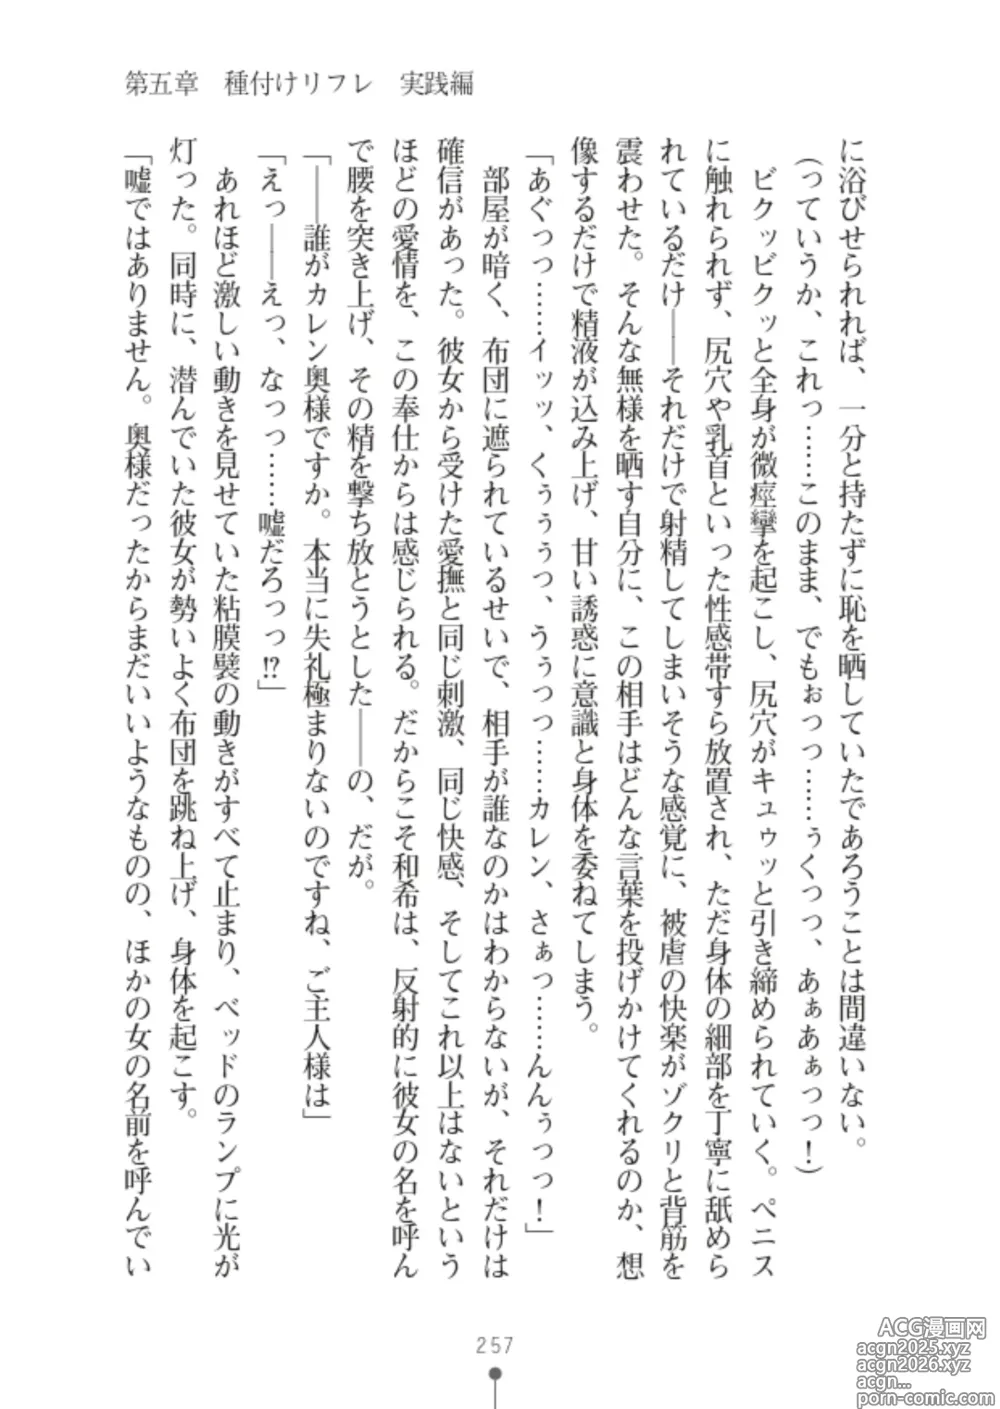 第五章　種付けリフレ　実践編
に浴びせられれば、一分と持たずに恥を晒していたであろうことは間違いない。
（っていうか、これっ……このまま、でもぉっっ……ぅくっっ、あぁあぁっっ！）
　ビクッビクッと全身が微痙攣を起こし、尻穴がキュゥッと引き締められていく。ペニス
に触れられず、尻穴や乳首といった性感帯すら放置され、ただ身体の細部を丁寧に舐めら
れているだけ――それだけで射精してしまいそうな感覚に、被虐の快楽がゾクリと背筋を
震わせた。そんな無様を晒す自分に、この相手はどんな言葉を投げかけてくれるのか、想
像するだけで精液が込み上げ、甘い誘惑に意識と身体を委ねてしまう。
「あぐっっ……イッッ、くぅぅぅっ、うぅっっ……カレン、さぁっ……んんぅっっ！」
　部屋が暗く、布団に遮られているせいで、相手が誰なのかはわからないが、それだけは
確信があった。彼女から受けた愛撫と同じ刺激、同じ快感、そしてこれ以上はないという
ほどの愛情を、この奉仕からは感じられる。だからこそ和希は、反射的に彼女の名を呼ん
で腰を突き上げ、その精を撃ち放とうとした――の、だが。
「――誰がカレン奥様ですか。本当に失礼極まりないのですね、ご主人様は」
「えっ――えっ、なっっ……嘘だろっっ!?」
　あれほど激しい動きを見せていた粘膜襞の動きがすべて止まり、ベッドのランプに光が
灯った。同時に、潜んでいた彼女が勢いよく布団を跳ね上げ、身体を起こす。
「嘘ではありません。奥様だったからまだいいようなものの、ほかの女の名前を呼んでい
257
ACG漫画网
acgn2025.xyz
acgn2026.xyz
acgn...
porn-comic.com